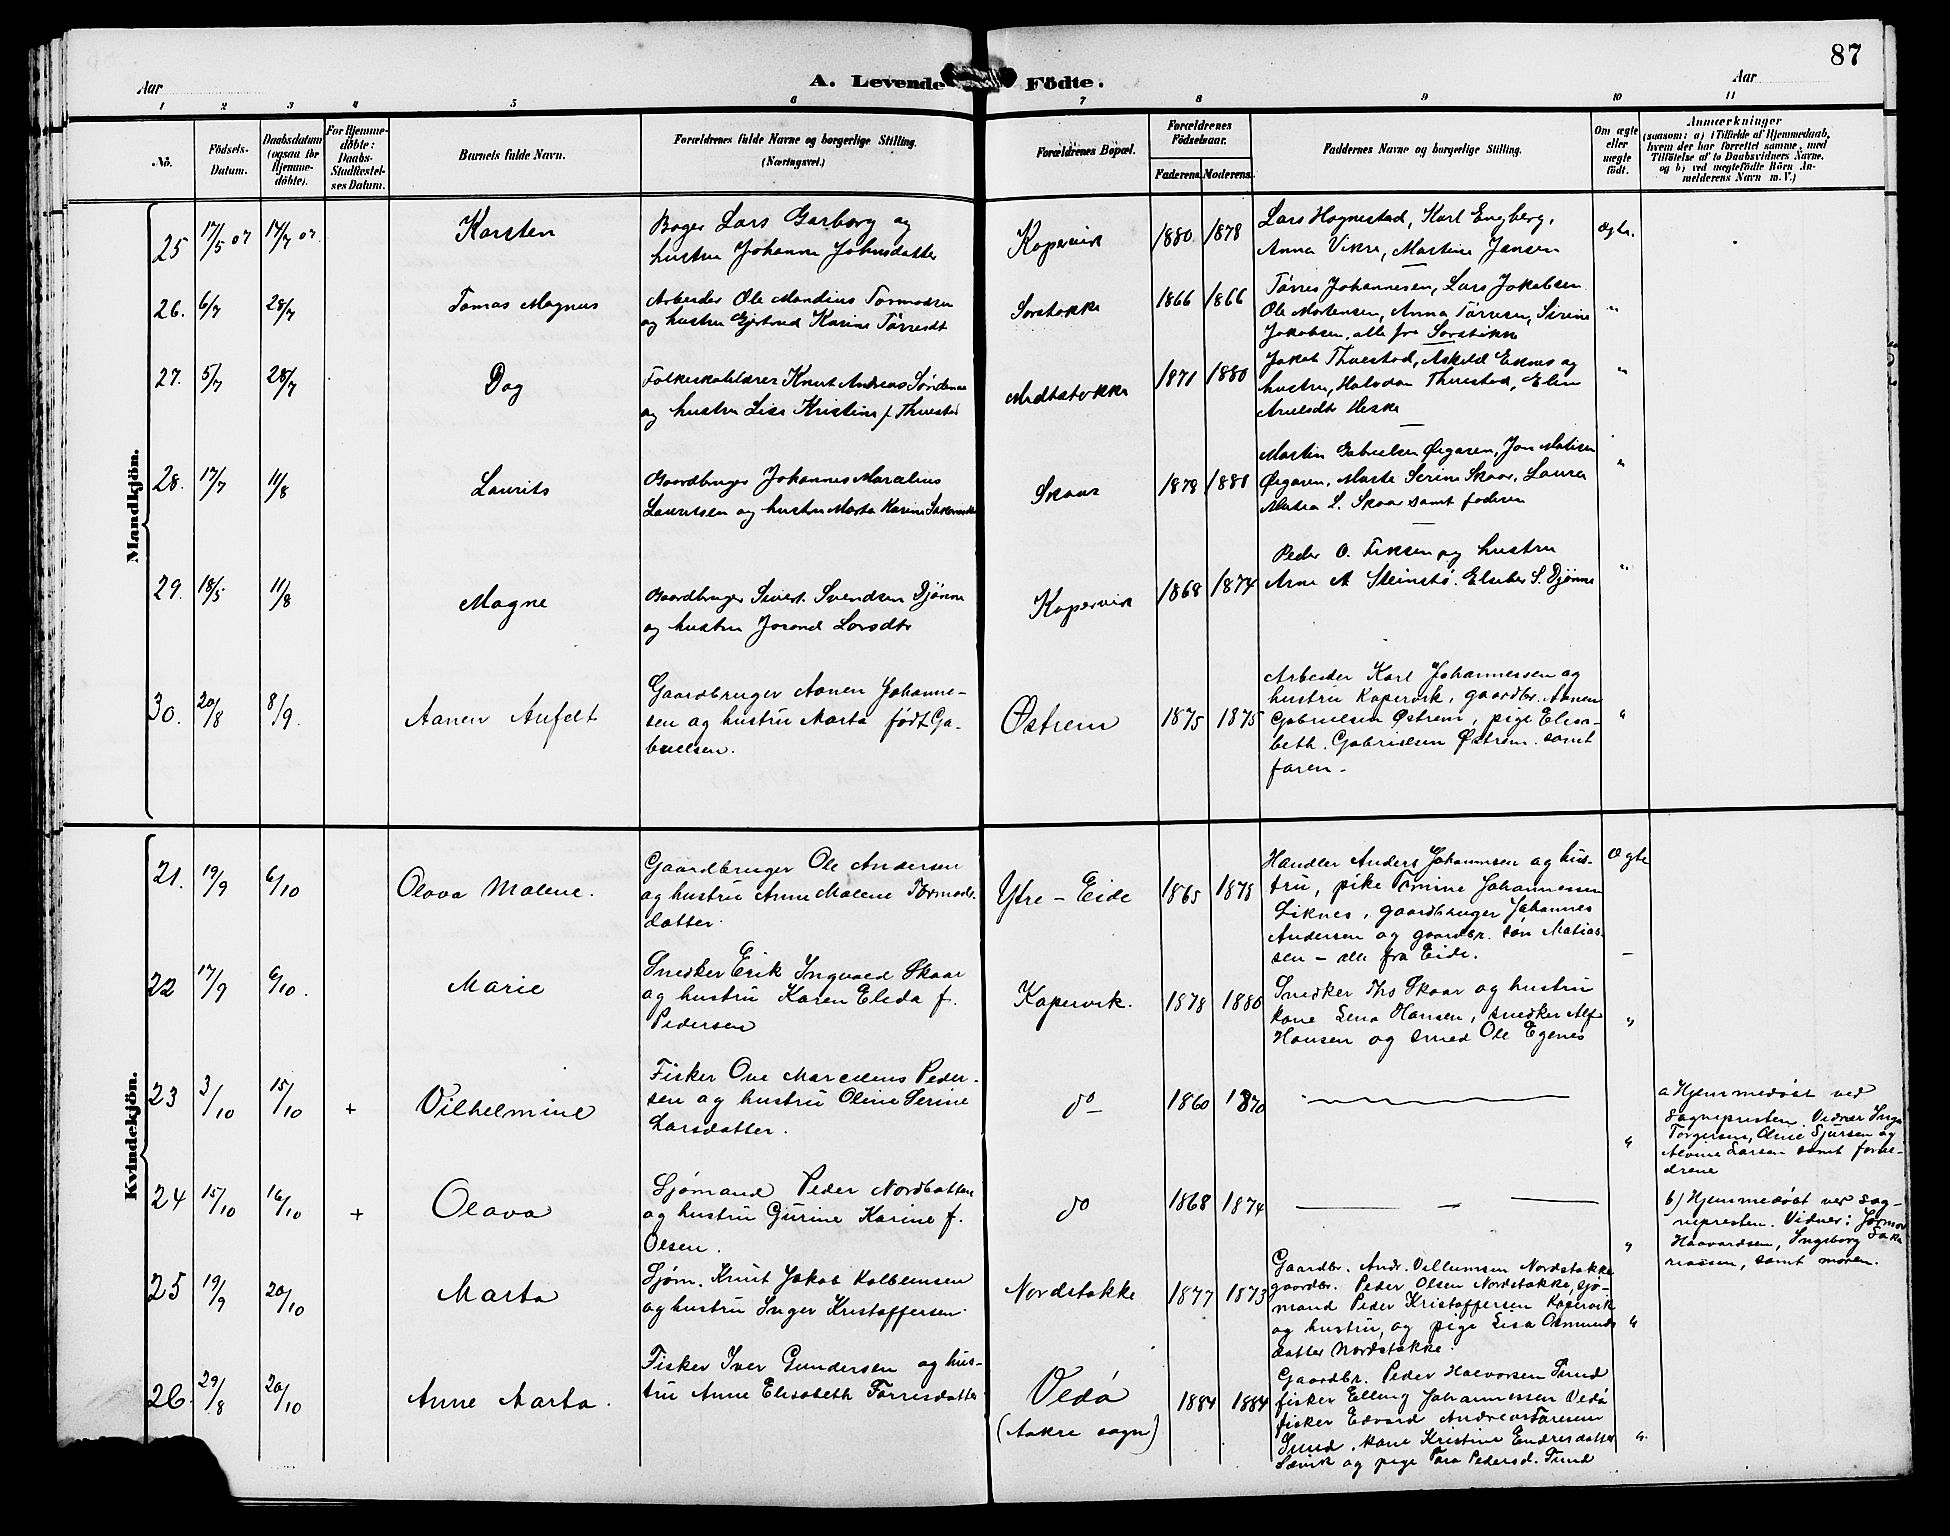 87
Aar
A. Levende Födte.
Aar
1 2 3 4 5 6 7 8 9 10 11
Nö.
Födsels-
Datum.
Daabsdatum
(ogsaa for
Hjemme-
döbte).
For Hjemme-
döbte:
Daabs-
Stadfæstel-
ses Datum.
Barnets fulde Navn.
Forældrenes fulde Navne og borgerlige Stilling.
(Næringsvei.)
Forældrenes Bopæl.
Forældrenes
Födselsaar.
Faderens. Moderens.
Faddernes Navne og borgerlige Stilling.
Om ægte
eller
uægte
födt.
Anmærkninger
(saasom: a) i Tilfælde af Hjemmedaab,
hvem der har forrettet samme, med
Tilföielse af to Daabsvidners Navne,
og b) ved uægtefödte Börn An-
melderens Navn m. V.)
Mandkjön.
25 17/5 07 14/7 07. Karsten
Bager Lars Garborg og
hustru Johanne Johnsdatter
Kopervik 1880 1878
Lars Hognestad, Karl Engberg,
Anna Vikre, Martine Jansen
Ægte.
26. 6/7 28/7 Tomas Magnus
Arbeider Ole Mandius Tormodsen
og hustru Gjertrud Karine Tørresdt
Sørstokke 1866 1866
Tørres Johannesen, Lars Jakobsen
Ole Mortensen, Anna Tørresen, Sirine
Jakobsen, alle fra Sørstokke
"
27. 5/7 28/7 Dag
Folkeskolelærer Knut Andreas
og hustru Lisa Kristine f. Thuestad
Midtstokke 1871 1880
Jakob Thuestad, Askild Eknes og
hustru, Halvdan Thuestad, Elin
"
28. 17/7 11/8 Laurits
Gaardbruger Johannes Marselius
Lauritsen og hustru Marta Karine
Skaar 1878 1881
Martin Gabrielsen Øygaren, Jon
Øygaren, Marte Serine Skaar, Laura
L. Skaar samt faderen
"
29. 18/5 11/8 Magne
Gaardbruger Sivert Svendsen Djønne
og hustru Jorond Larsdtr
Kopervik 1868 1874
Peder O. Eiksen og hustru
Arne A. Steinstø. Elseber S. Djønne
"
30. 20/8 8/9. Aanen Anfelt
Gaardbruger Aanen Johanne-
sen og hustru Marta født Ga-
brielsen.
Østrem 1875 1875
Arbeider Karl Johannessen og
hustru Kopervik, gaardbr. Aanen
Gabrielsen Østrem, pige Elisa-
beth Gabrielsen Østrem samt
faren.
"
Kvindekjön.
21. 19/9 6/10 Olava Malene.
Gaardbruger Ole Andersen
og hustru Anne Malene Tormods-
datter.
Ytre - Eide 1865 1878
Handler Anders Johannesen og hus-
tru, pike Tomine Johannessen
Liknes, gaardbruger Johannes
Andersen og gaardbr. søn Matias-
sen - alle fra Eide.
Ægte
22 17/9 6/10. Marie
Snedker Erik Ingvald Skaar
og hustru Karen Elida f.
Pedersen
Kopervik. 1878 1880
Snedker Ths Skaar og hustru
kone Lena Hansen, snedker Alf
Hansen og smed Ole Egenes
"
23 3/10 15/10 + Vilhelmine
Fisker Ove Marcelius Peder-
sen og hustru Oline Serine
Larsdatter.
do 1860 1870
"
a Hjemmedøbt ved
sognepresten. Vidner Inga
Torgersen, Oline Sjursen og
Alvine Larsen samt foræl-
drene
24 15/10 16/10 + Olava
Sjømand Peder Nordbotten
og hustru Gurine Karine f.
Olsen.
do 1868 1874
"
b) Hjemmedøbt ved sog-
nepresten. Vidner: Gurine
Haavardsen, Ingeborg Saka-
riassen, samt moren.
25 19/9 20/10 Marta
Sjøm. Knut Jakob Kolbeinsen
og hustru Inger Kristoffersen
Nordstokke 1877 1873
Gaardbr. Andr. Villumsen Nordstokke
gaardbr. Peder Olsen Nordstokke, sjø-
mand Peder Kristoffersen Kopervik
og hustru, og pige Lisa Osmunds
datter Nordstokke.
"
26. 29/8 20/10 Anne Marta.
Fisker Iver Gundersen og hus-
tru Anne Elisabeth Tørresdatter
Vedø
(Aakre sogn)
1884 1884
Gaardbr. Peder Halvorsen Sund
fisker Elling Johannessen Vedø
fisker Edvard Andreas Tøresen
Sund, kone Kristine Endresdatter
Sævik og pige Tora Pedersd. Sund
"